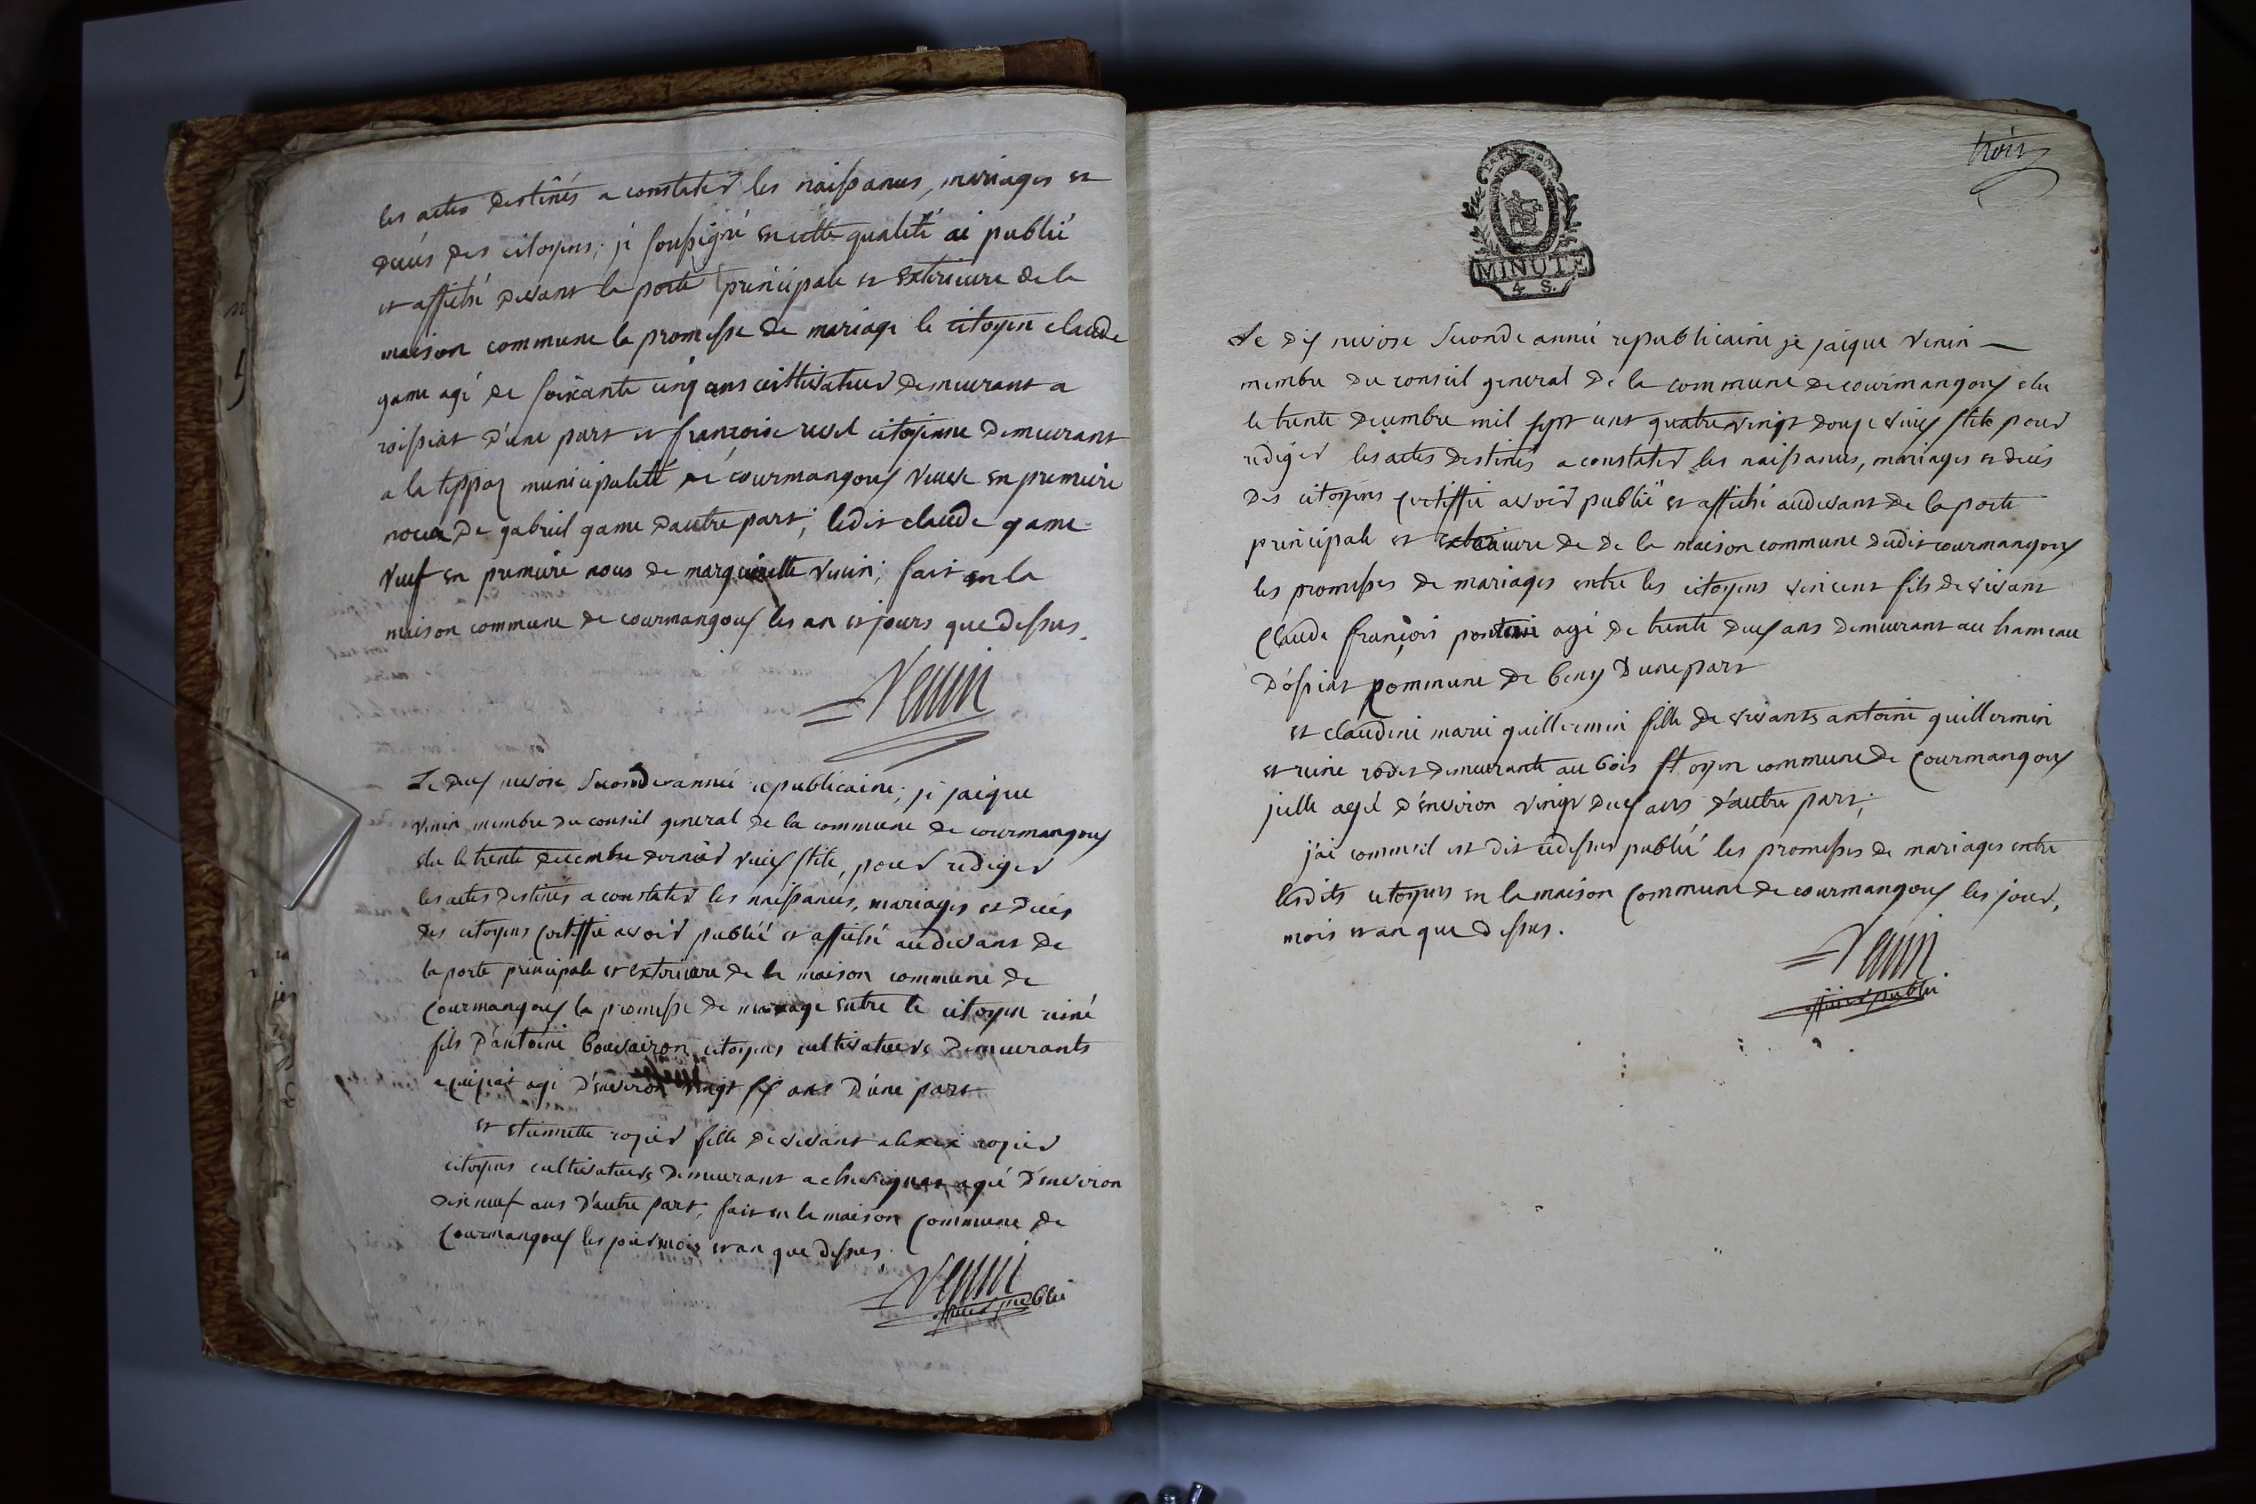 les actes destinés a constater les naissances, mariages et
décés des citoyens; je soussigné en cette qualité ai publié
et affiché devant la porte principale et exterieure de la
maison commune la promesse de mariage le citoyen claude
game agé de soixante cinq ans cultivateur demeurant a
roissiat d'une part et françoise revel citoyenne demeurant
a la teppaz municipalité de courmangoux veuve en premiere
noces de gabriel game d'autre part; ledit claude game
veuf en premiere nous de margueritte venin; fait en la
maison commune de courmangoux les an et jours que dessus.
Venin
Le deux nivose seconde année republicaine; je jaique
venin membre du conseil general de la commune de courmangoux
elu le trente decembre dernier vieux stile, pour rediger
les actes destinés a constater les naissances, mariages et décés
des citoyens certiffie avoir publié et affiché au devant de
la porte principale et exterieure de la maison commune de
Courmangoux la promesse de mariage entre le citoyen
fils d'antoine citoyens cultivateurs demeurants
a agé d'environ vingt six ans d'une part
et etiennette rogier fille de vivant alexi rogier
citoyens cultivateurs demeurant a chevignat agé d'environ
dixneuf ans d'autre part; fait en la maison commune de
Courmangoux les jour mois et an que dessus.
Venin
officier publié
trois
MINUTE
4 S.
Le dix nivose seconde année republicaine je jaique venin
membre du conseil general de la commune de courmangoux elu
le trente decembre mil sept cent quatre vingt douze vieux stile pour
rediger les actes destinés a constater les naissances, mariages et décés
des citoyens certiffie avoir publié et affiché audevant de la porte
principale et exterieure de de la maison commune dudit courmangoux
les promesses de mariages entre les citoyens vincent fils de vivant
Claude françois agé de trente deux ans demeurant au hameau
d'ossiat commune de beny d'une part
et claudine marie guillermin fille de vivants antoine guillermin
et reine rodet demeurante au bois st oyen commune de Courmangoux
jcelle agé d'environ vingt deux ans d'autre part;
j'ai comme il est dit cidessus publié les promesses de mariages entre
lesdits citoyens en la maison Commune de courmangoux les jour,
mois et an que dessus.
Venin
officier publié